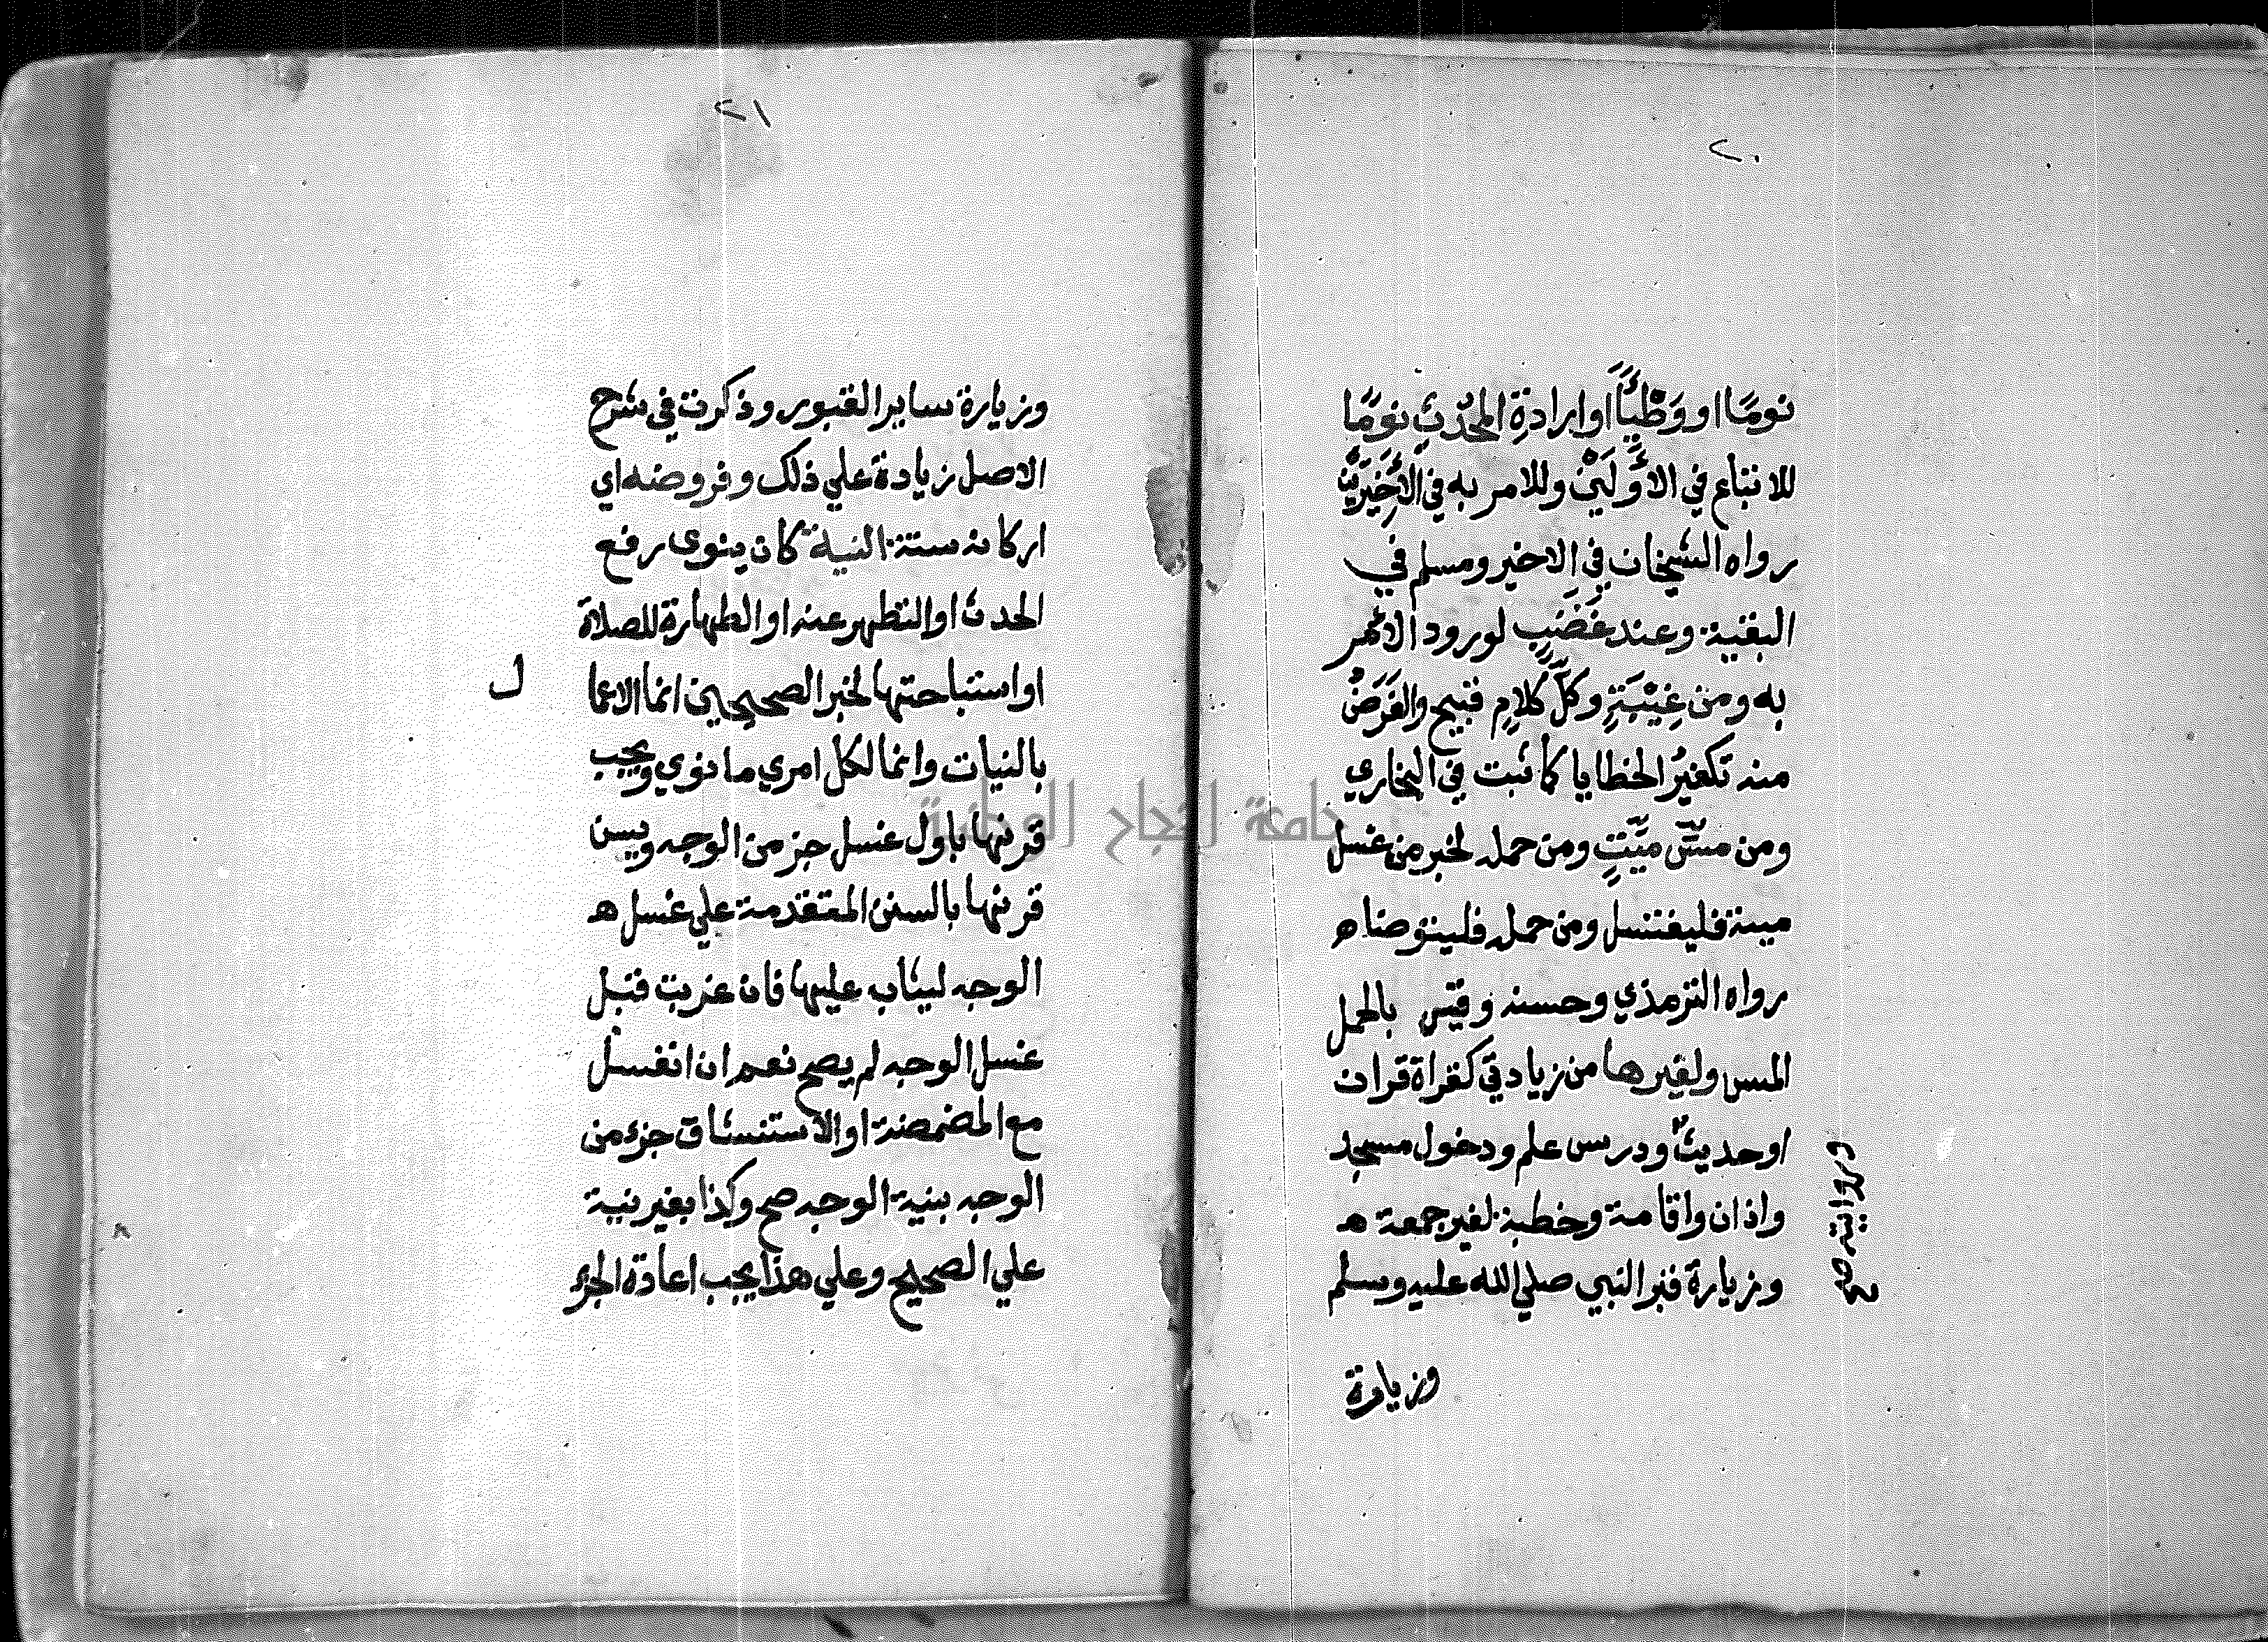 ٢٠
نومًا او وَطْئًا او ارادةِ المحْدِثِ نومًا
للاتباع في الاُوْلَيَيْنِ وللامر به في الاَخِيرَيْنِ
رواه الشيخان في الاخير ومسلم في
البقية وعند غَضَبٍ لورود الامر
به ومن غِيْبَةٍ وكلِّ كلامٍ قبيح والغَرَضُ
منه تكفيرُ الخطايا كما ثبت في البخاري
ومن مسِّ ميِّتٍ ومن حمله لخبر من غسل
ميتة فليغتسل ومن حمله فليتوضاه
رواه الترمذي وحسنه وقيس بالحمل
المس ولغيرها من زيادتي كقراة قران
او حديث ودرس علم ودخول مسجد
وروايته صح
واذان واقامة وخطبة لغير جمعة ه
وزيارة قبر النبي صلي الله عليه وسلم
وزيارة
٢١
وزيارة ساير القبور وذكرت في شرح
الاصل زيادة علي ذلك وفروضه اي
اركانه ستة النية كان ينوى رفع
الحدث او التطهر عنه او الطهارة للصلاة
او استباحتها لخبر الصحيحين انما الاعما
ل
بالنيات وانما لكل امري ما نوي ويجب
قرنها باول غسل جز من الوجه ويسن
قرنها بالسنن المتقدمة علي غسل ه
الوجه ليثاب عليها فان عزبت قبل
غسل الوجه لم يصح نعم ان انغسل
مع المضمضة او الاستنشاق جزء من
الوجه بنية الوجه صح وكذا بغير نية
علي الصحيح وعلي هذا يجب اعادة الجزء
جامعة النجاح الوطنية